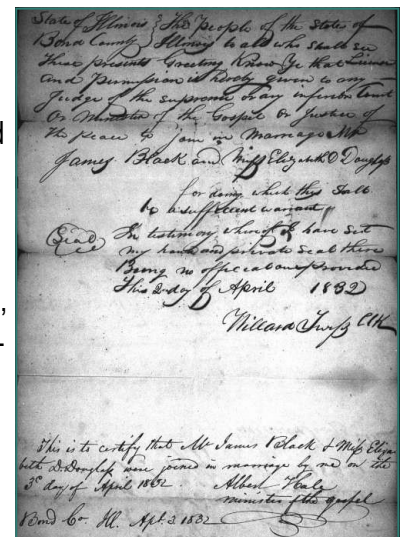 State of Illinois } The People of the State of
Bond County } Illinois to all who shall see
these presents Greeting Know Ye that License
and Permission is hereby given to any
Judge of the Supreme or any inferior Court
Or Minister of the Gospel or Justice of
the Peace to join in Marriage Mr
James Black and Miss Elizabeth D Douglass
for doing which this Shall
be a sufficient warrant
Seal
In testimony whereof I have Set
my hand and private Seal there
Being no official one provided
This 2 day of April 1832
Willard Twiss Clk
This is to certify that Mr James Black & Miss Eliza
beth D. Douglass were joined in marriage by me on the
3d day of April 1832
Albert Hale
minister of the gospel
Bond Co. Ill. Apl. 3 1832
d
,
-